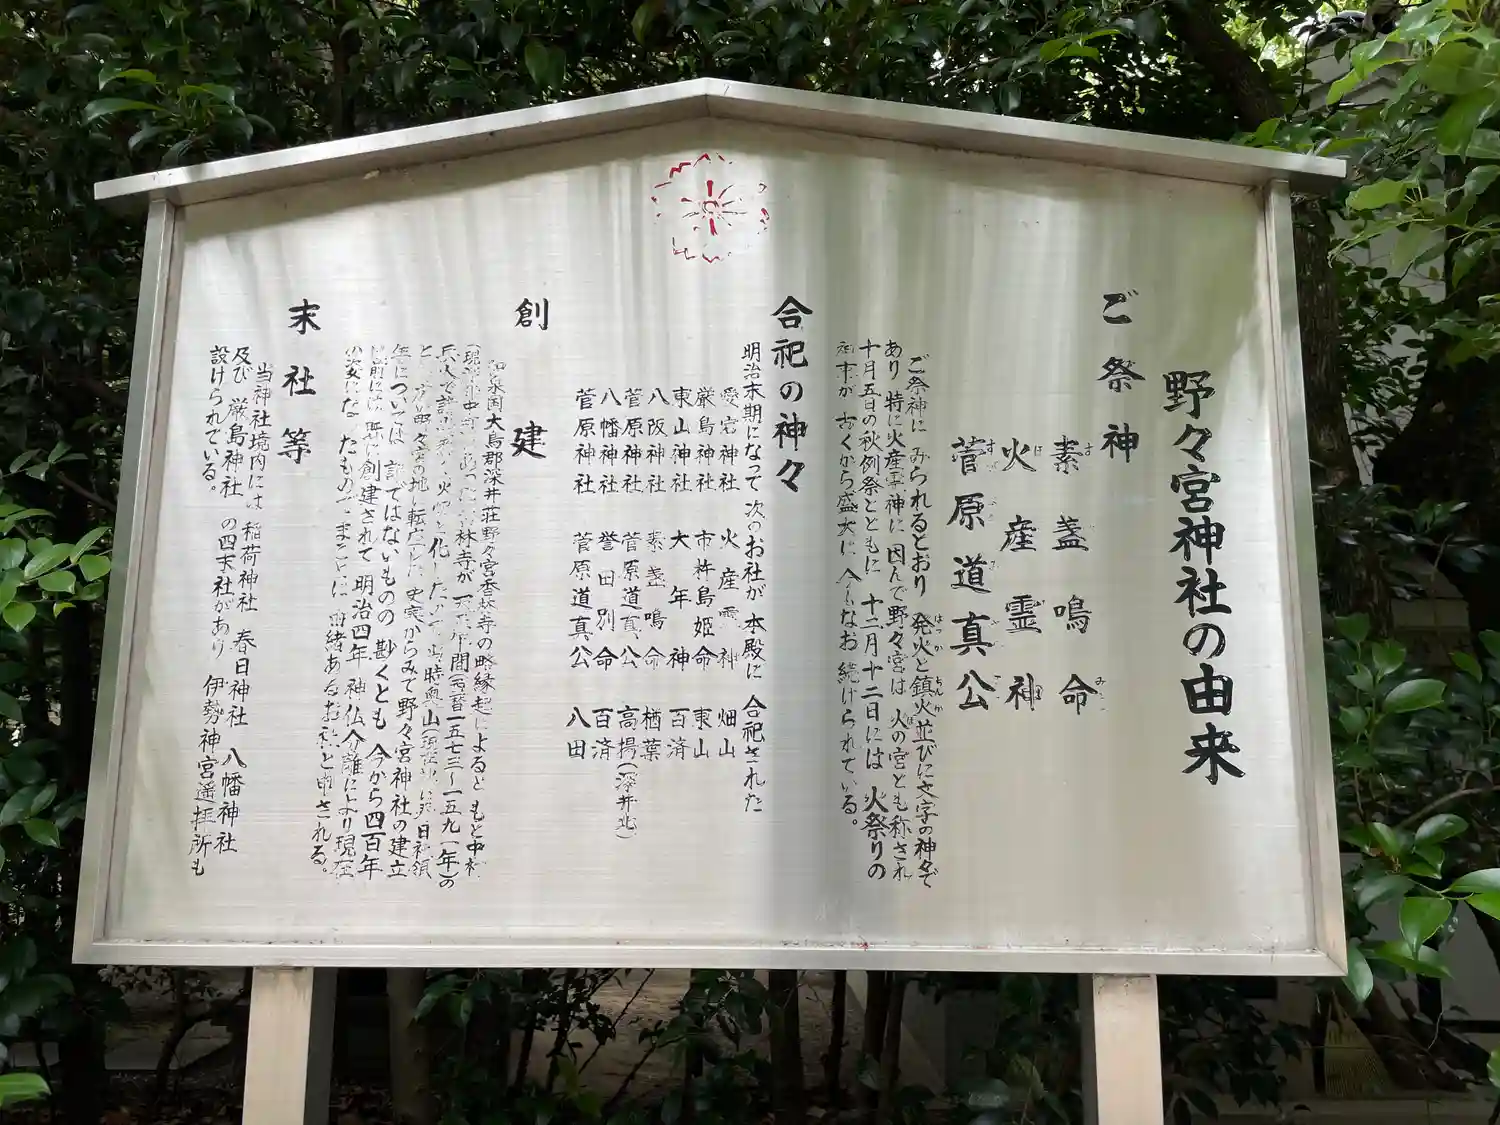 野々宮神社の由来
ご祭神
素盞鳴命
火産霊神
菅原道真公
ご祭神に みられるとおり 発火と鎮火並びに文字の神々で
あり 特に火産霊神に因んで野々宮は 火の宮とも称され
十月五日の秋例祭とともに 十二月十二日には 火祭りの
神事が 古くから盛大に 今もなお 続けられている。
合祀の神々
明治末期になって 次のお社が 本殿に 合祀された
愛宕神社 火産霊神 畑山
厳島神社 市杵島姫命 東山
東山神社 大年神 百済
八阪神社 素盞鳴命 楢葉
菅原神社 菅原道真公 高揚(深井北)
八幡神社 誉田別命 百済
菅原神社 菅原道真公 八田
創建
和泉国大鳥郡深井荘野々宮香林寺の略縁起によると もと中村
(現 香林寺が 天正年間(西暦一五七三〜一五九一年)の
兵火で 火 と化した 当時奥山(現在 春日神社領
と 野々宮の地に転 史実からみて野々宮神社の建立
年については 詳ではないものの 尠くとも 今から四百年
以前には既に創建されて 明治四年 神仏分離により現在
の姿になったもので まことに 由緒あるお社と申される。
末社等
当神社境内には 稲荷神社 春日神社 八幡神社
及び 厳島神社 の四末社があり 伊勢神宮遥拝所も
設けられている。